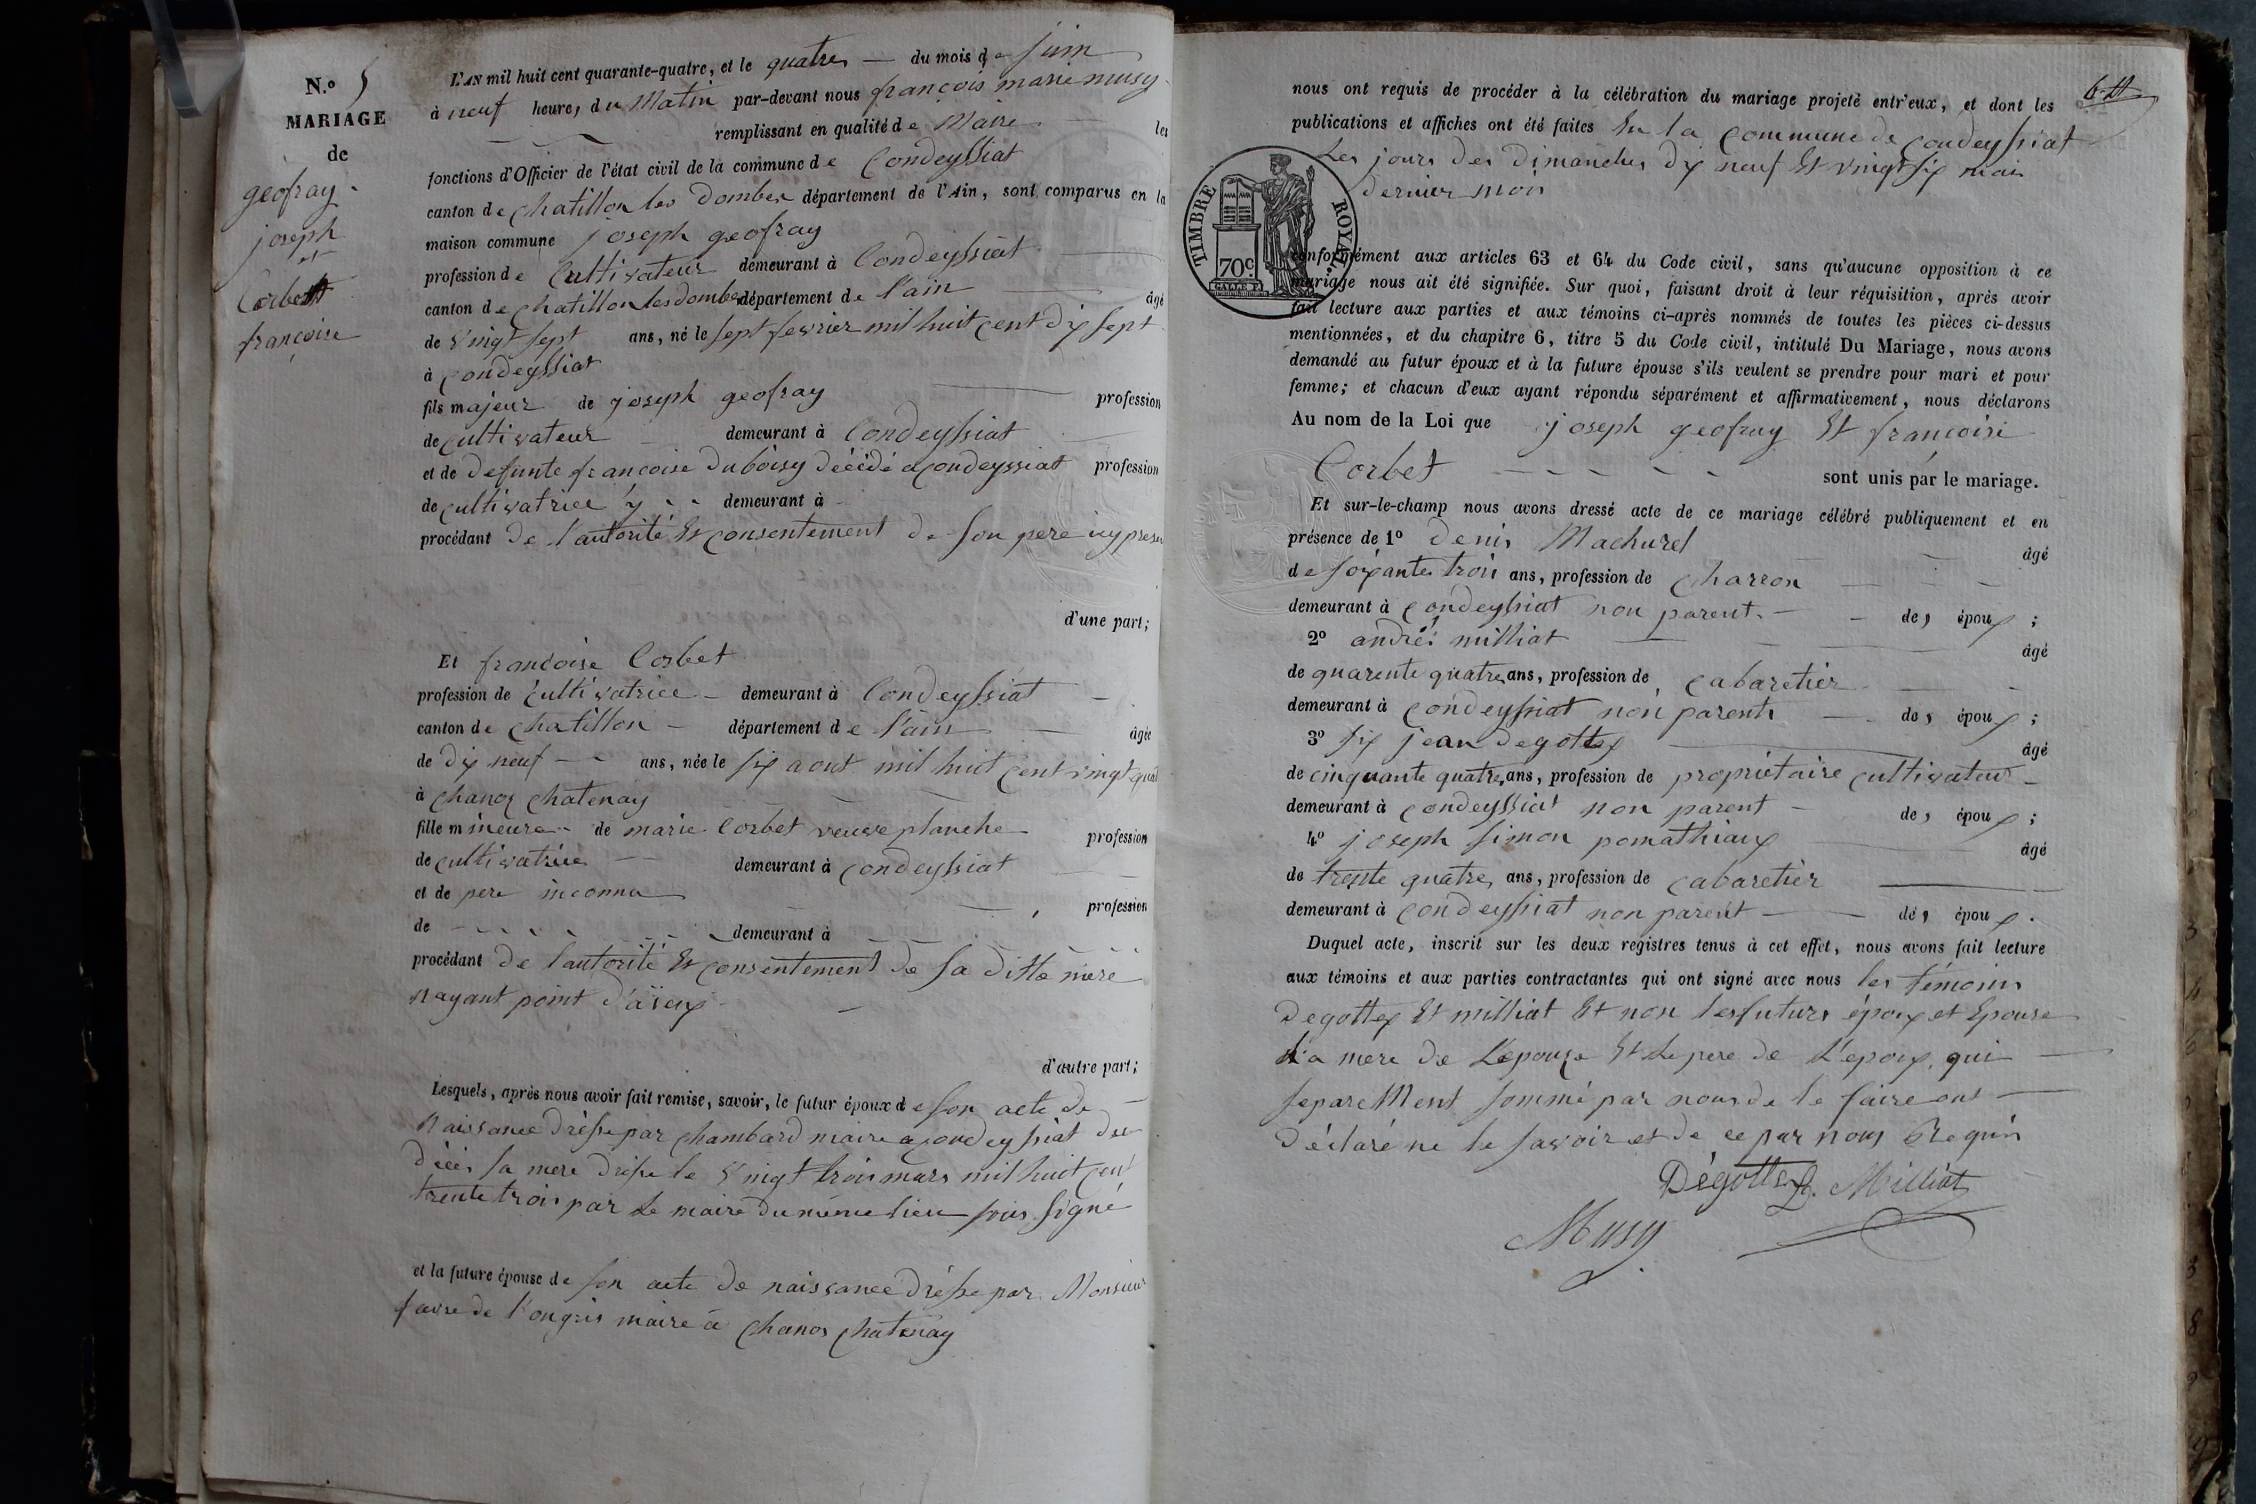 N.o 5
MARIAGE
de
geofray
joseph
et
Corbet
françoise
L'AN mil huit cent quarante-quatre, et le quatre du mois de juin
à neuf heures du Matin par-devant nous françois marie musy
remplissant en qualité de Maire les
fonctions d'Officier de l'état civil de la commune de Condeyssiat
canton de chatillon les Dombes département de l'Ain, sont comparus en la
maison commune joseph geofray
profession de Cultivateur demeurant à Condeyssiat
canton de chatillon les dombes département de l'ain âgé
de vingt sept ans, né le sept fevrier mil huit cent dix sept
à Condeyssiat
fils majeur de joseph geofray profession
de cultivateur demeurant à Condeyssiat
et de defunte francoise Duboisy décédé a Condeyssiat profession
de cultivatrice y demeurant à
procédant De l'autorité Et consentement De son pere icy presen
d'une part;
Et francoise Corbet
profession de Cultivatrice demeurant à Condeyssiat
canton de chatillon département de l'ain âgée
de dix neuf ans, née le six aout mil huit cent vingt quat
à chanoz chatenay
fille mineure de marie Corbet veuve planche profession
de cultivatrice demeurant à Condeyssiat
et de pere inconnu profession
de demeurant à
procédant de l'autorité Et consentement de sa ditte mere
Nayant point d'aïeux
d'autre part;
Lesquels, après nous avoir fait remise, savoir, le futur époux de son acte de
Naissance dréssé par chambard maire a Condeyssiat du
décès sa mere drésse le vingt trois mars mil huit cent
trente trois par Le maire du même lieu sous signé
et la future épouse de son acte de naissance drésse par Monsieur
favre de Longris maire à chanos chatenay
6
nous ont requis de procéder à la célébration du mariage projeté entr'eux, et dont les
publications et affiches ont été faites En la commune de Condeyssiat
Les jours des Dimanches dix neuf Et vingt six mai
dernier mois
TIMBRE ROYAL
70c
conformément aux articles 63 et 64 du Code civil, sans qu'aucune opposition à ce
mariage nous ait été signifiée. Sur quoi, faisant droit à leur réquisition, après avoir
fait lecture aux parties et aux témoins ci-après nommés de toutes les pièces ci-dessus
mentionnées, et du chapitre 6, titre 5 du Code civil, intitulé Du Mariage, nous avons
demandé au futur époux et à la future épouse s'ils veulent se prendre pour mari et pour
femme; et chacun d'eux ayant répondu séparément et affirmativement, nous déclarons
Au nom de la Loi que joseph geofray Et francoise
Corbet sont unis par le mariage.
Et sur-le-champ nous avons dressé acte de ce mariage célébré publiquement et en
présence de 1o Denis Machurel âgé
de soixante trois ans, profession de charron
demeurant à Condeyssiat non parent des époux;
2o andré milliat âgé
de quarente quatre ans, profession de cabaretier
demeurant à Condeyssiat non parent des époux;
3o jean Degottex âgé
de cinquante quatre ans, profession de propriétaire cultivateur
demeurant à Condeyssiat non parent des époux;
4o joseph simon pomathiaux âgé
de trente quatre ans, profession de cabaretier
demeurant à Condeyssiat non parent des époux.
Duquel acte, inscrit sur les deux registres tenus à cet effet, nous avons fait lecture
aux témoins et aux parties contractantes qui ont signé avec nous les témoins
Degottex Et milliat Et non les futurs époux et Epouse
La mere de L'epouse Et Le pere de L'epoux qui
separement sommé par nous de le faire ont
déclaré ne le savoir et de ce par nous Requis
Dégottex Milliat
Musy